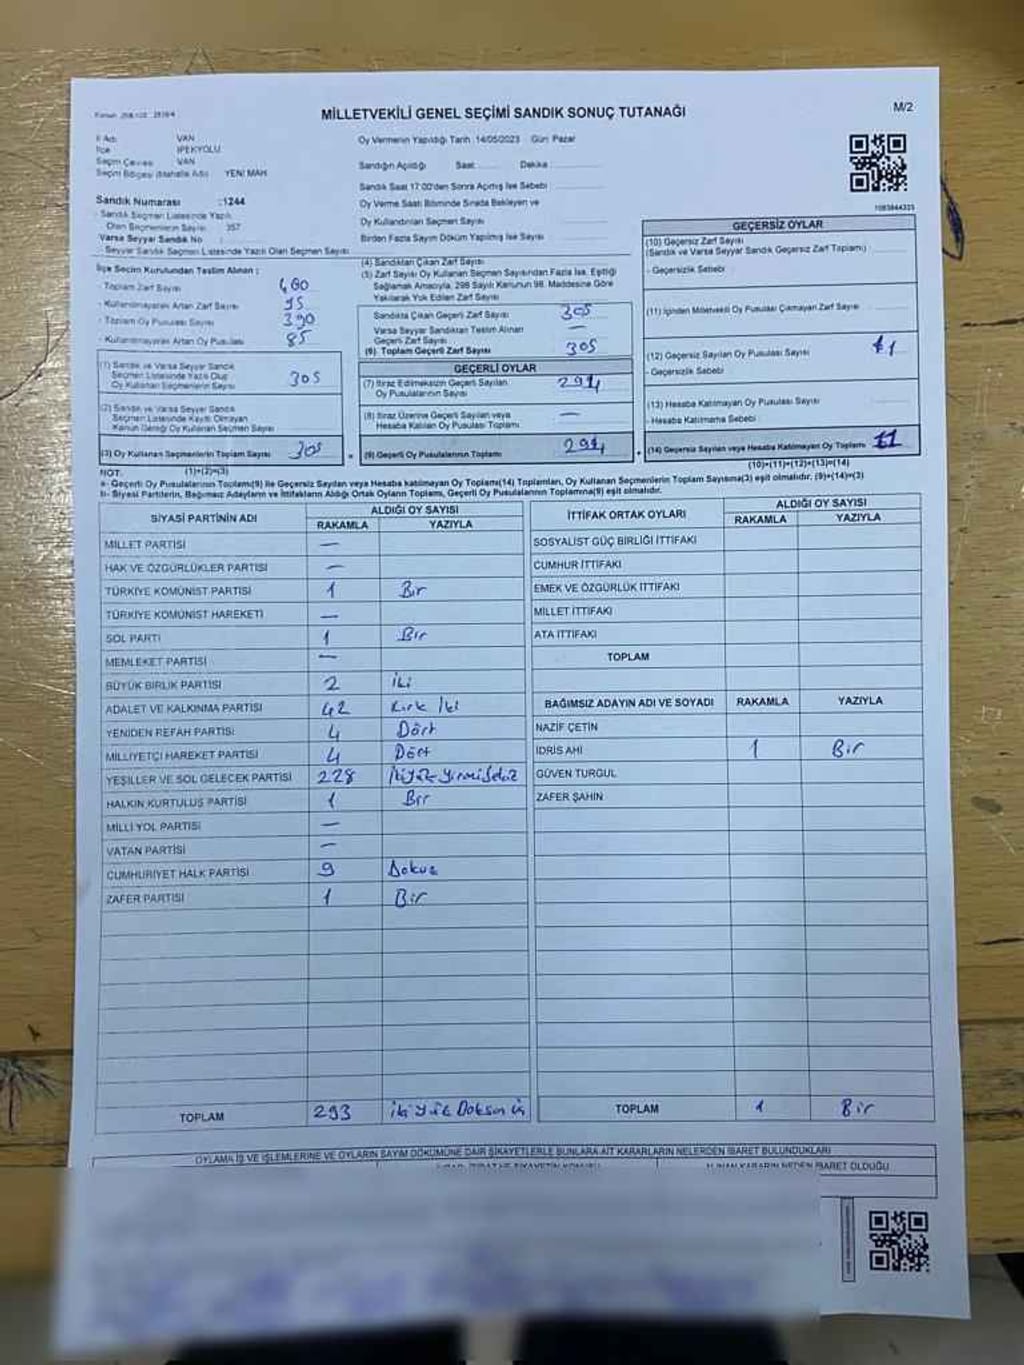 MİLLETVEKİLİ GENEL SEÇİMİ SANDIK SONUÇ TUTANAĞI
M/2
İl Adı VAN
İlçe İPEKYOLU
Seçim Çevresi VAN
Seçim Bölgesi (Mahalle Adı) YENİ MAH
Sandık Numarası :1244
- Sandık Seçmen Listesinde Yazılı
Olan Seçmenlerin Sayısı 357
Varsa Seyyar Sandık No :
- Seyyar Sandık Seçmen Listesinde Yazılı Olan Seçmen Sayısı
İlçe Seçim Kurulundan Teslim Alınan :
- Toplam Zarf Sayısı 400
- Kullanılmayarak Artan Zarf Sayısı 95
- Toplam Oy Pusulası Sayısı 390
- Kullanılmayarak Artan Oy Pusulası 85
(1) Sandık ve Varsa Seyyar Sandık
Seçmen Listesinde Yazılı Olup
Oy Kullanan Seçmenlerin Sayısı 305
(2) Sandık ve Varsa Seyyar Sandık
Seçmen Listesinde Kayıtlı Olmayan
Kanun Gereği Oy Kullanan Seçmen Sayısı
(3) Oy Kullanan Seçmenlerin Toplam Sayısı 305
(1)+(2)=(3)
Oy Vermenin Yapıldığı Tarih :14/05/2023 Gün: Pazar
Sandığın Açıldığı Saat: Dakika:
Sandık Saat 17:00'den Sonra Açılmış İse Sebebi
Oy Verme Saati Bitiminde Sırada Bekleyen ve
Oy Kullandırılan Seçmen Sayısı
Birden Fazla Sayım Döküm Yapılmış İse Sayısı
(4) Sandıktan Çıkan Zarf Sayısı
(5) Zarf Sayısı Oy Kullanan Seçmen Sayısından Fazla İse, Eşitliği
Sağlamak Amacıyla, 298 Sayılı Kanunun 98. Maddesine Göre
Yakılarak Yok Edilen Zarf Sayısı
Sandıkta Çıkan Geçerli Zarf Sayısı 305
Varsa Seyyar Sandıktan Teslim Alınan
Geçerli Zarf Sayısı —
(6) Toplam Geçerli Zarf Sayısı 305
GEÇERLİ OYLAR
(7) İtiraz Edilmeksizin Geçerli Sayılan
Oy Pusulalarının Sayısı 294
(8) İtiraz Üzerine Geçerli Sayılan veya
Hesaba Katılan Oy Pusulası Toplamı —
(9) Geçerli Oy Pusulalarının Toplamı 294
1083844323
GEÇERSİZ OYLAR
(10) Geçersiz Zarf Sayısı
(Sandık ve Varsa Seyyar Sandık Geçersiz Zarf Toplamı)
- Geçersizlik Sebebi
(11) İçinden Milletvekili Oy Pusulası Çıkmayan Zarf Sayısı
(12) Geçersiz Sayılan Oy Pusulası Sayısı 11
- Geçersizlik Sebebi
(13) Hesaba Katılmayan Oy Pusulası Sayısı
- Hesaba Katılmama Sebebi
(14) Geçersiz Sayılan veya Hesaba Katılmayan Oy Toplamı 11
(10)+(11)+(12)+(13)=(14)
NOT:
a- Geçerli Oy Pusulalarının Toplamı(9) ile Geçersiz Sayılan veya Hesaba katılmayan Oy Toplamı(14) Toplamları, Oy Kullanan Seçmenlerin Toplam Sayısına(3) eşit olmalıdır. (9)+(14)=(3)
b- Siyasi Partilerin, Bağımsız Adayların ve İttifakların Aldığı Ortak Oyların Toplamı, Geçerli Oy Pusulalarının Toplamına(9) eşit olmalıdır.
SİYASİ PARTİNİN ADI ALDIĞI OY SAYISI
RAKAMLA YAZIYLA
MİLLET PARTİSİ —
HAK VE ÖZGÜRLÜKLER PARTİSİ —
TÜRKİYE KOMÜNİST PARTİSİ 1 Bir
TÜRKİYE KOMÜNİST HAREKETİ —
SOL PARTİ 1 Bir
MEMLEKET PARTİSİ —
BÜYÜK BİRLİK PARTİSİ 2 iki
ADALET VE KALKINMA PARTİSİ 42 Kırk İki
YENİDEN REFAH PARTİSİ 4 Dört
MİLLİYETÇİ HAREKET PARTİSİ 4 Dört
YEŞİLLER VE SOL GELECEK PARTİSİ 228 İkiyüz Yirmi Sekiz
HALKIN KURTULUŞ PARTİSİ 1 Bir
MİLLİ YOL PARTİSİ —
VATAN PARTİSİ —
CUMHURİYET HALK PARTİSİ 9 Dokuz
ZAFER PARTİSİ 1 Bir
TOPLAM 293 iki yüz Doksan üç
İTTİFAK ORTAK OYLARI ALDIĞI OY SAYISI
RAKAMLA YAZIYLA
SOSYALİST GÜÇ BİRLİĞİ İTTİFAKI
CUMHUR İTTİFAKI
EMEK VE ÖZGÜRLÜK İTTİFAKI
MİLLET İTTİFAKI
ATA İTTİFAKI
TOPLAM
BAĞIMSIZ ADAYIN ADI VE SOYADI RAKAMLA YAZIYLA
NAZİF ÇETİN
İDRİS AHİ 1 Bir
GÜVEN TURGUL
ZAFER ŞAHİN
TOPLAM 1 Bir
OYLAMA İŞ VE İŞLEMLERİNE VE OYLARIN SAYIM DÖKÜMÜNE DAİR ŞİKAYETLERLE BUNLARA AİT KARARLARIN NELERDEN İBARET BULUNDUKLARI